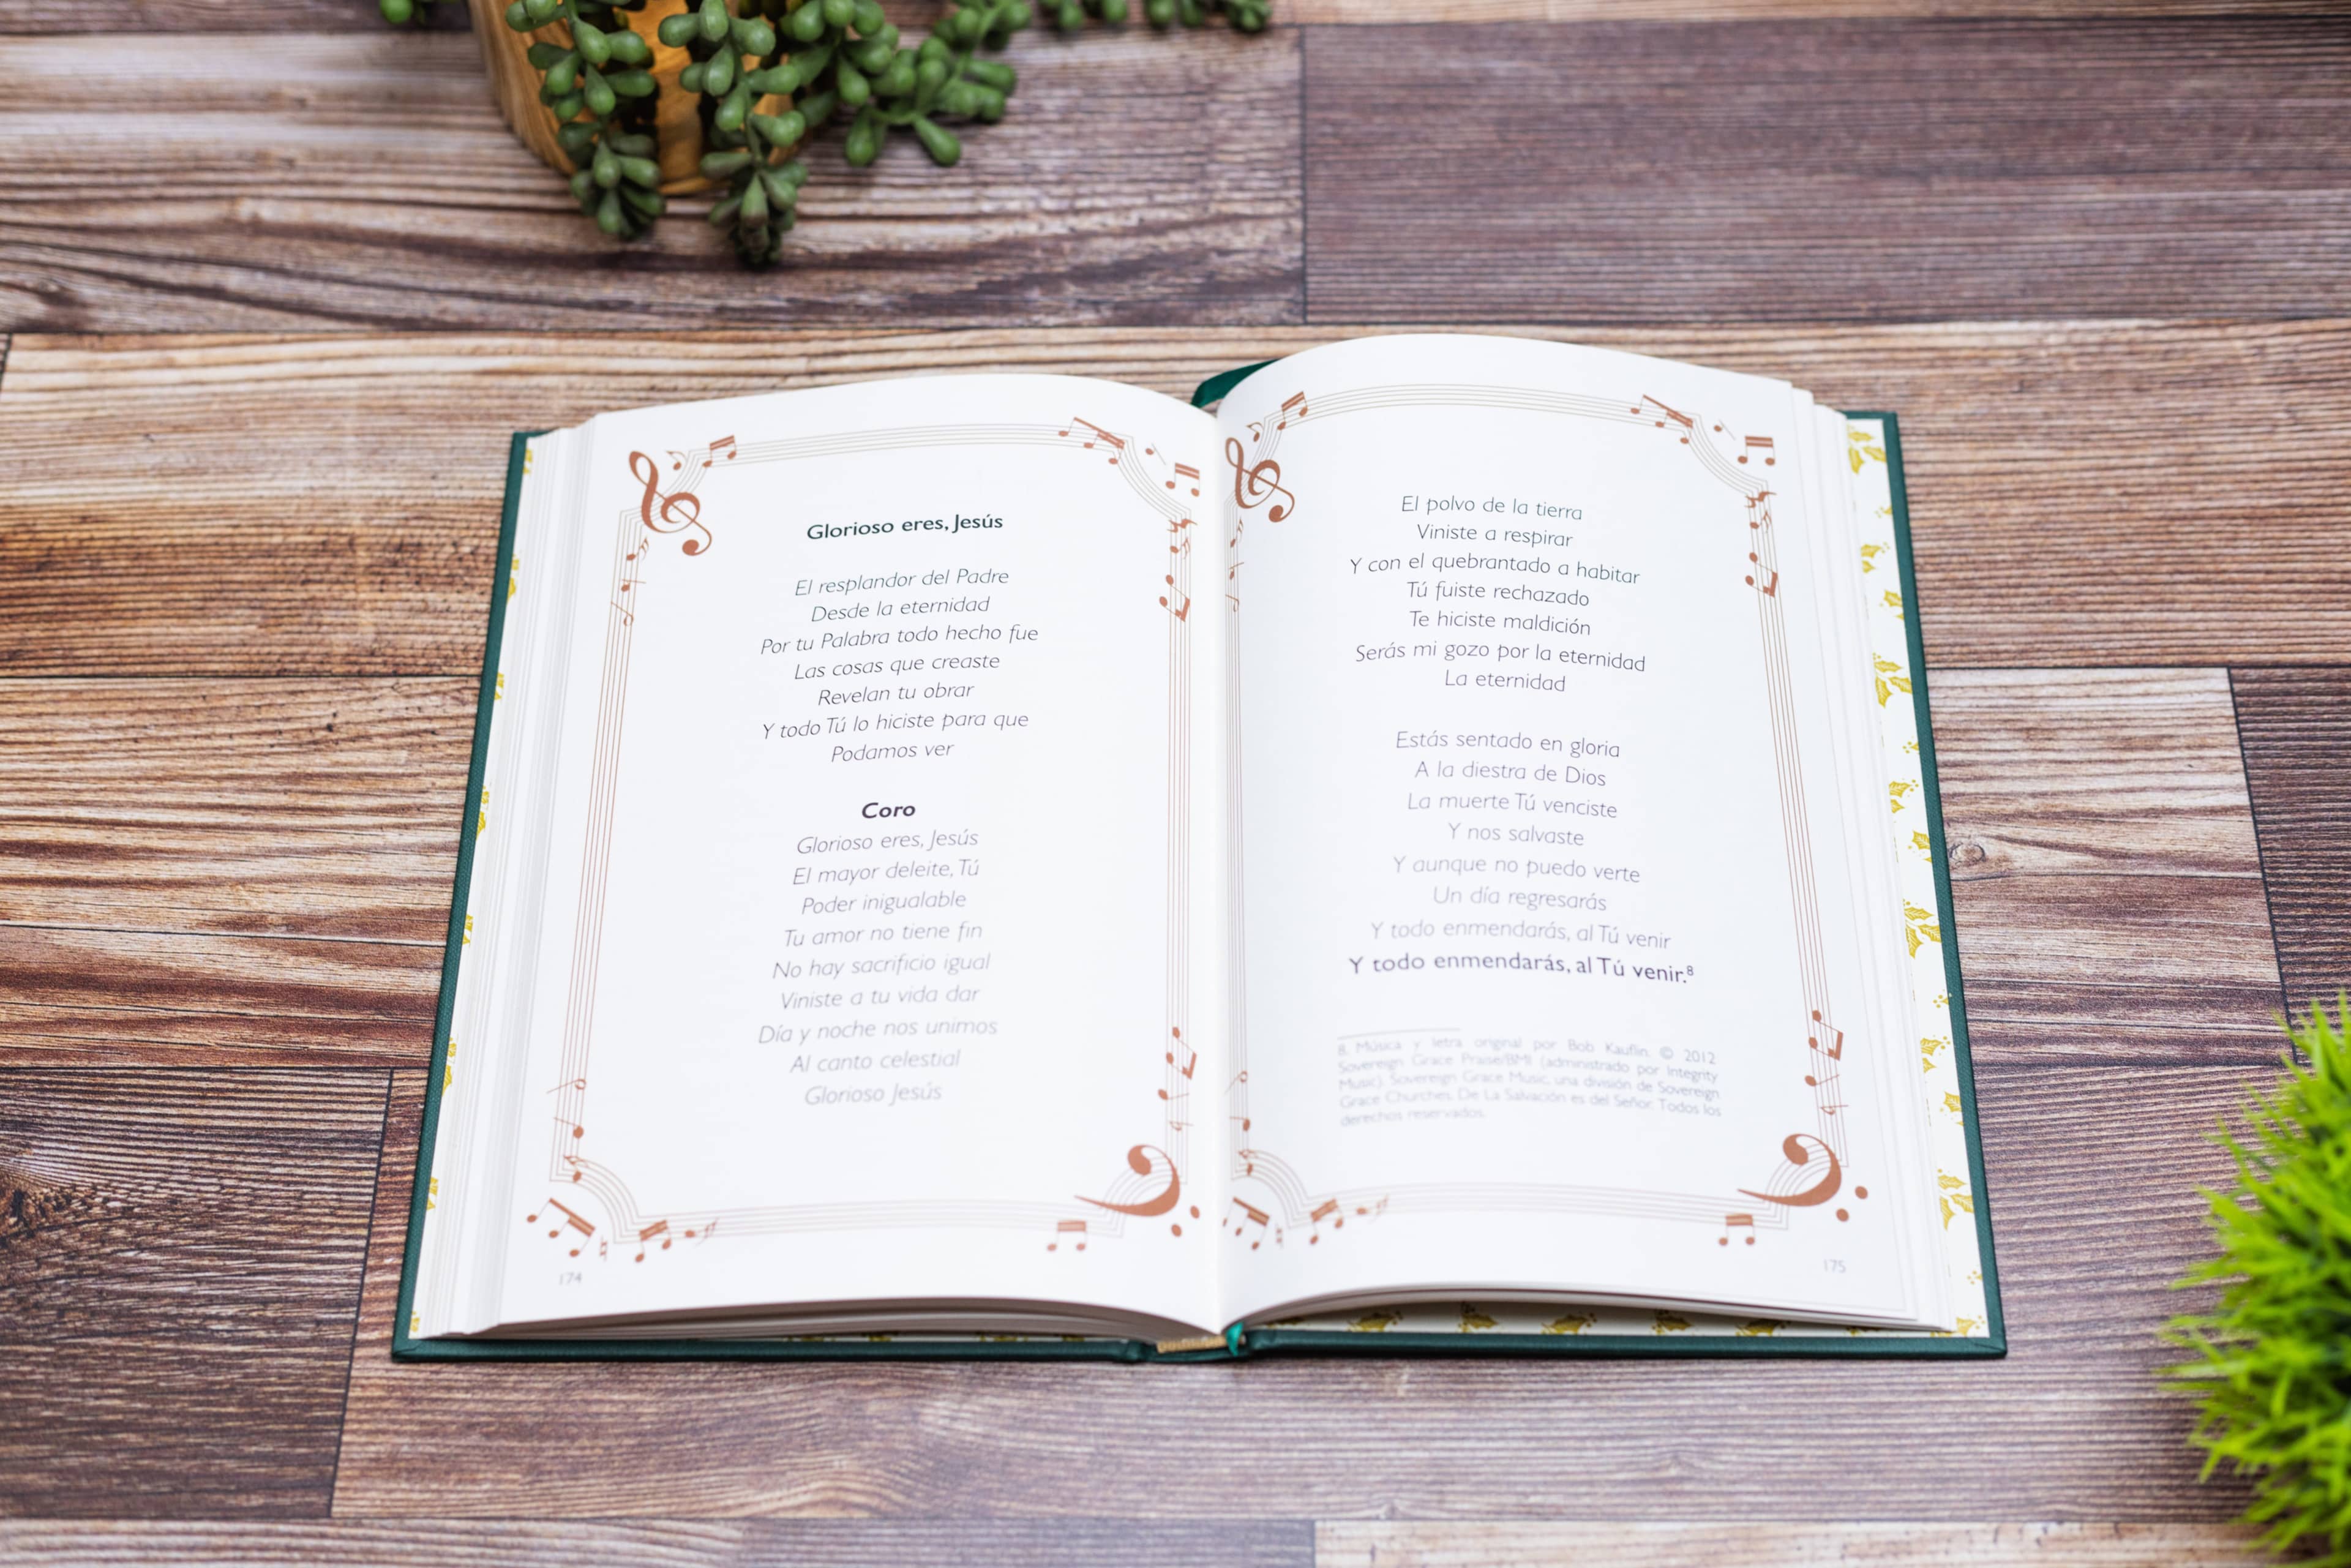 Glorioso eres, Jesús
El resplandor del Padre
Desde la eternidad
Por tu Palabra todo hecho fue
Las cosas que creaste
Revelan tu obrar
Y todo Tú lo hiciste para que
Podamos ver
Coro
Glorioso eres, Jesús
El mayor deleite, Tú
Poder inigualable
Tu amor no tiene fin
No hay sacrificio igual
Viniste a tu vida dar
Día y noche nos unimos
Al canto celestial
Glorioso Jesús
174
El polvo de la tierra
Viniste a respirar
Y con el quebrantado a habitar
Tú fuiste rechazado
Te hiciste maldición
Serás mi gozo por la eternidad
La eternidad
Estás sentado en gloria
A la diestra de Dios
La muerte Tú venciste
Y nos salvaste
Y aunque no puedo verte
Un día regresarás
Y todo enmendarás, al Tú venir
Y todo enmendarás, al Tú venir.⁸
8. Música y letra original por Bob Kauflin. © 2012
Sovereign Grace Praise/BMI (administrado por Integrity
Music). Sovereign Grace Music, una división de Sovereign
Grace Churches. De La Salvación es del Señor. Todos los
derechos reservados.
175